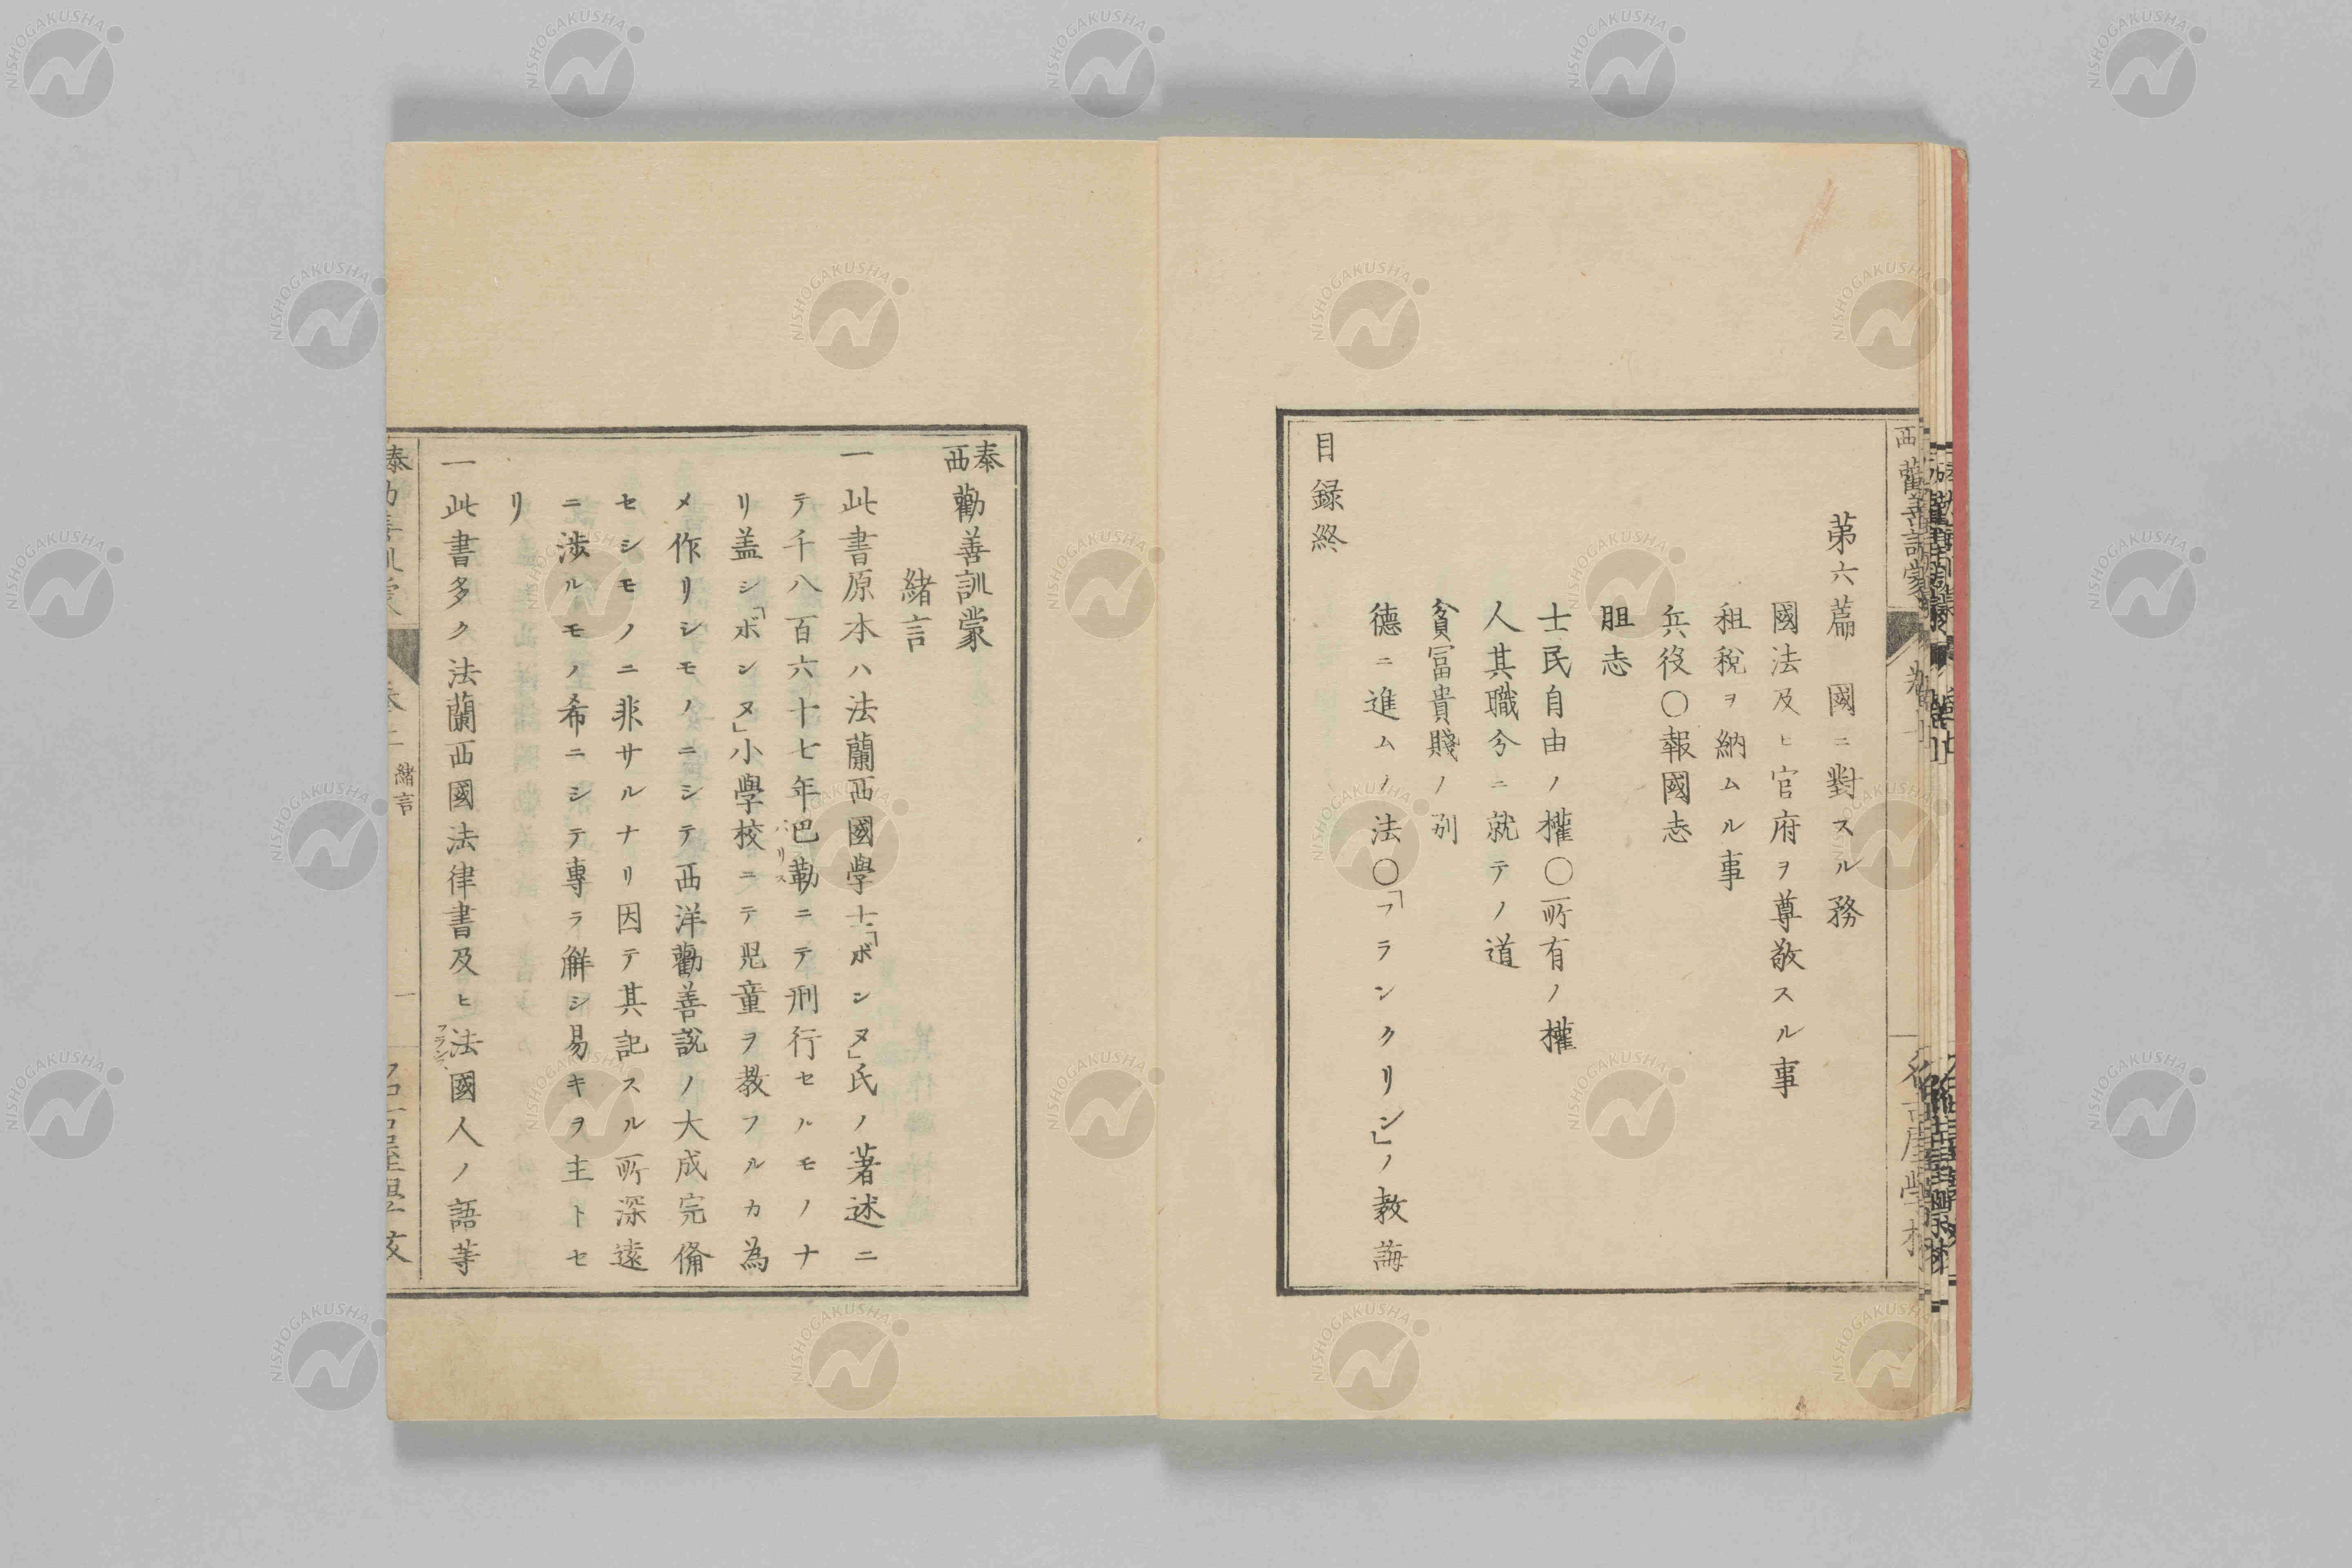 第六篇 國ニ對スル務
國法及ヒ官府ヲ尊敬スル事
租稅ヲ納ムル事
兵役〇報國志
胆志
士民自由ノ權〇所有ノ權
人其職分ニ就テノ道
貧冨貴賤ノ別
德ニ進ムノ法〇「フランクリン」ノ教誨
目録終
泰西勸善訓蒙
緒言
一此書原本ハ法蘭西國學士「ボンヌ」氏ノ著述ニ
テ千八百六十七年巴勒ニテ刑行セルモノナ
パリス
リ盖シ「ボンヌ」小學校ニテ児童ヲ教フルカ為
メ作リシモノニシテ西洋勸善說ノ大成完備
セシモノニ非サルナリ因テ其記スル所深遠
ニ渉ルモノ希ニシテ專ラ解シ易キヲ主トセ
リ
一此書多ク法蘭西國法律書及ヒ法國人ノ語等
緒言
一
NISHOGAKUSHA